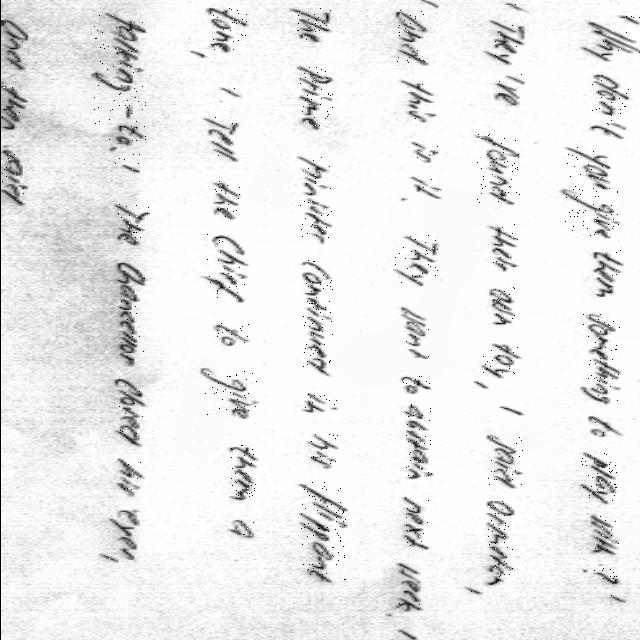 " Why don't you give them something to play with ? "
" They 've found their own toy, " said Ormiston.
" And this is it. They want to abstain next week. "
The Prime Minister continued in his flippant
tone, " Tell the Chief to give them a
talking-to. " The Chancellor closed his eyes,
and then said